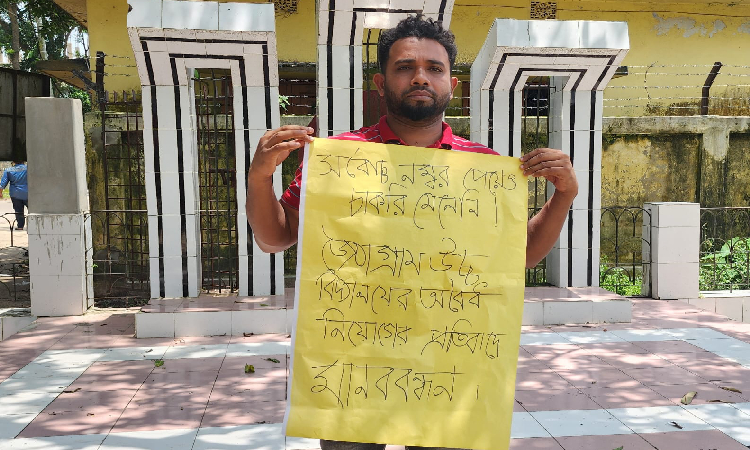 সর্বোচ্চ নম্বর পেয়েও
চাকরি মেলেনি !
উচ্চ
বিদ্যালয়ের অবৈধ
নিয়োগের প্রতিবাদে
মানববন্ধন ।